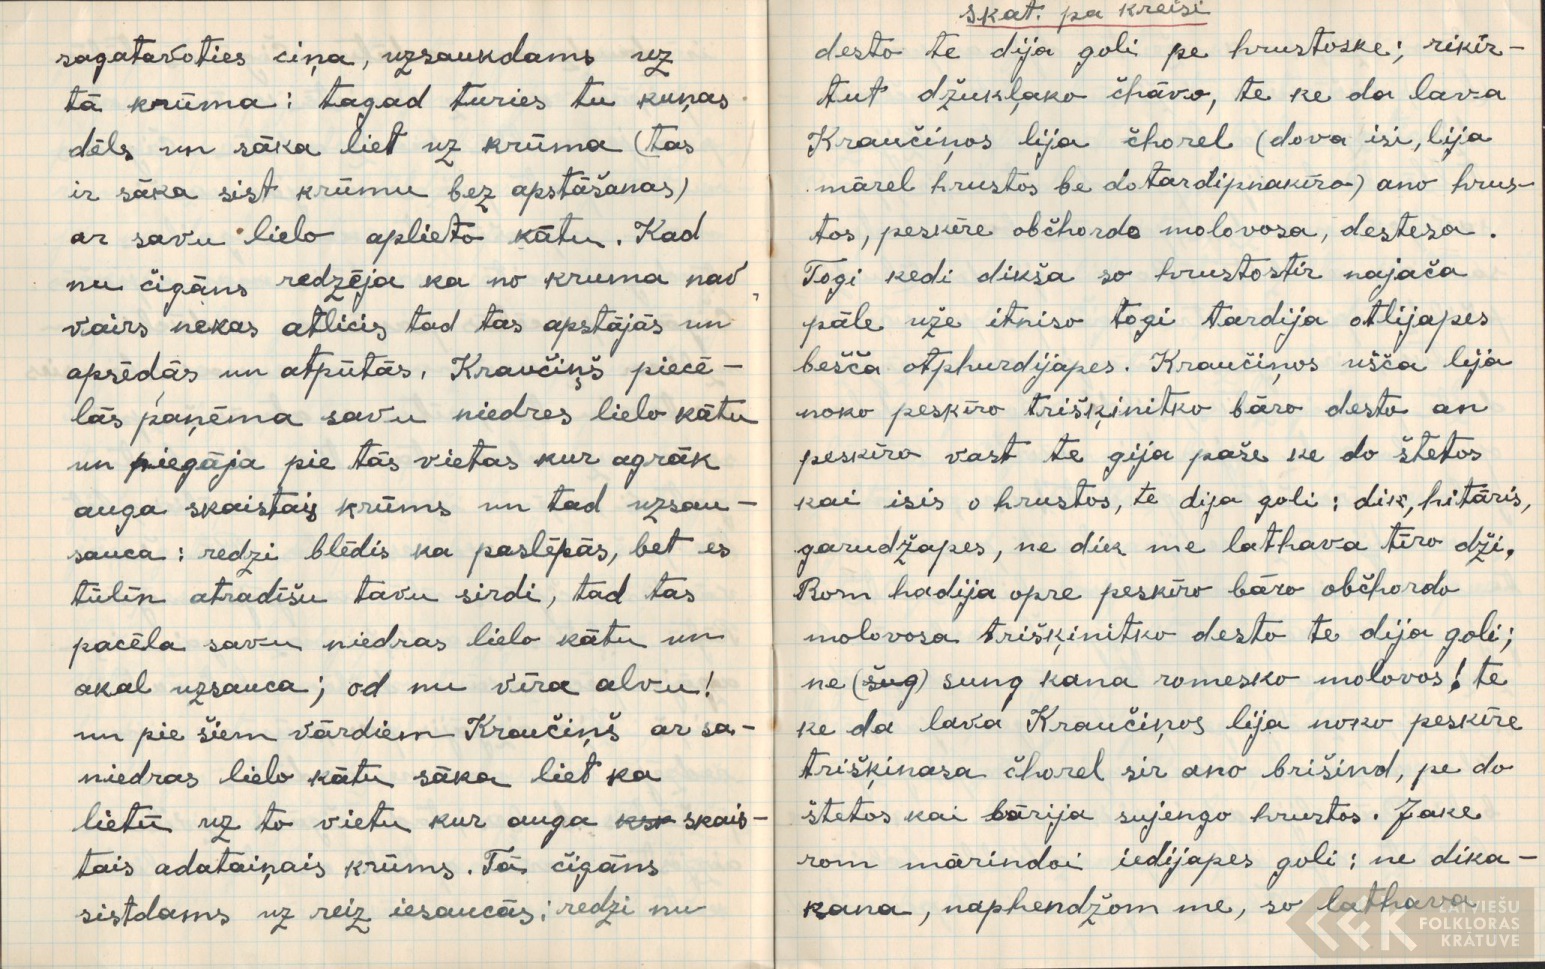 sagatavoties ciņa, uzsaukdams uz
tā krūma: tagad turies tu kuņas
dēls un sāka liet uz krūma (tas
ir sāka sist krūmu bez apstāšanas)
ar savu lielo aplieto kātu. Kad
nu čigāns redzēja ka no kruma nav
vairs nekas atlicis tad tas apstājās un
apsēdās un atpūtās. Kraučiņš piecē-
lās paņēma savu niedres lielo kātu
un piegāja pie tās vietas kur agrāk
auga skaistais krūms un tad uzsau-
sauca: redzi blēdis ka paslēpās, bet es
tūlīn atradīšu tavu sirdi, tad tas
pacēla savu niedras lielo kātu un
akal uzsauca; od nu vīra alvu!
un pie šiem vārdiem Kraučiņš ar sa-
niedras lielo kātu sāka liet ka
lietū uz to vietu kur auga kur skais-
tais adataiņais krūms. Tā čigāns
sistdams uz reiz iesaucās; redzi nu
skat. pa kreisi
desto te dija goli pe hrustoske; rikir-
tut džukļako čhāvo, te ke da lava
Kraučiņos lija čhorel (dova isi, lija
mārel hrustos be dotardipnakīro) ano hrus-
tos, peskīre občhordo molovosa, destesa.
Togi kedi dikša so hrustostīr najača
pāle uže itniso togi tardija otlijapes
bešča otphurdijapes. Kraučiņos ušča lija
noko peskīro trišķinitko bāro desto an
peskīro vast te gija paše ke do štetos
kai isis o hrustos, te dija goli: dik, hitāris,
garudžapes, ne dik me lathava tīro dži.
Rom hadija opre peskīro bāro občhordo
molovosa trišķinitko desto te dija goli;
ne (šug) sung kana romesko molovos! te
ke da lava Kraučiņos lija noko peskīre
trišķinasa čhorel sir ano brišind, pe do
štetos kai bārija sujengo hrustos. Jake
rom mārindoi iedijapes goli: ne dika-
kana, naphendžom me, so lathava
LATVIEŠU
FOLKLORAS
KRĀTUVE